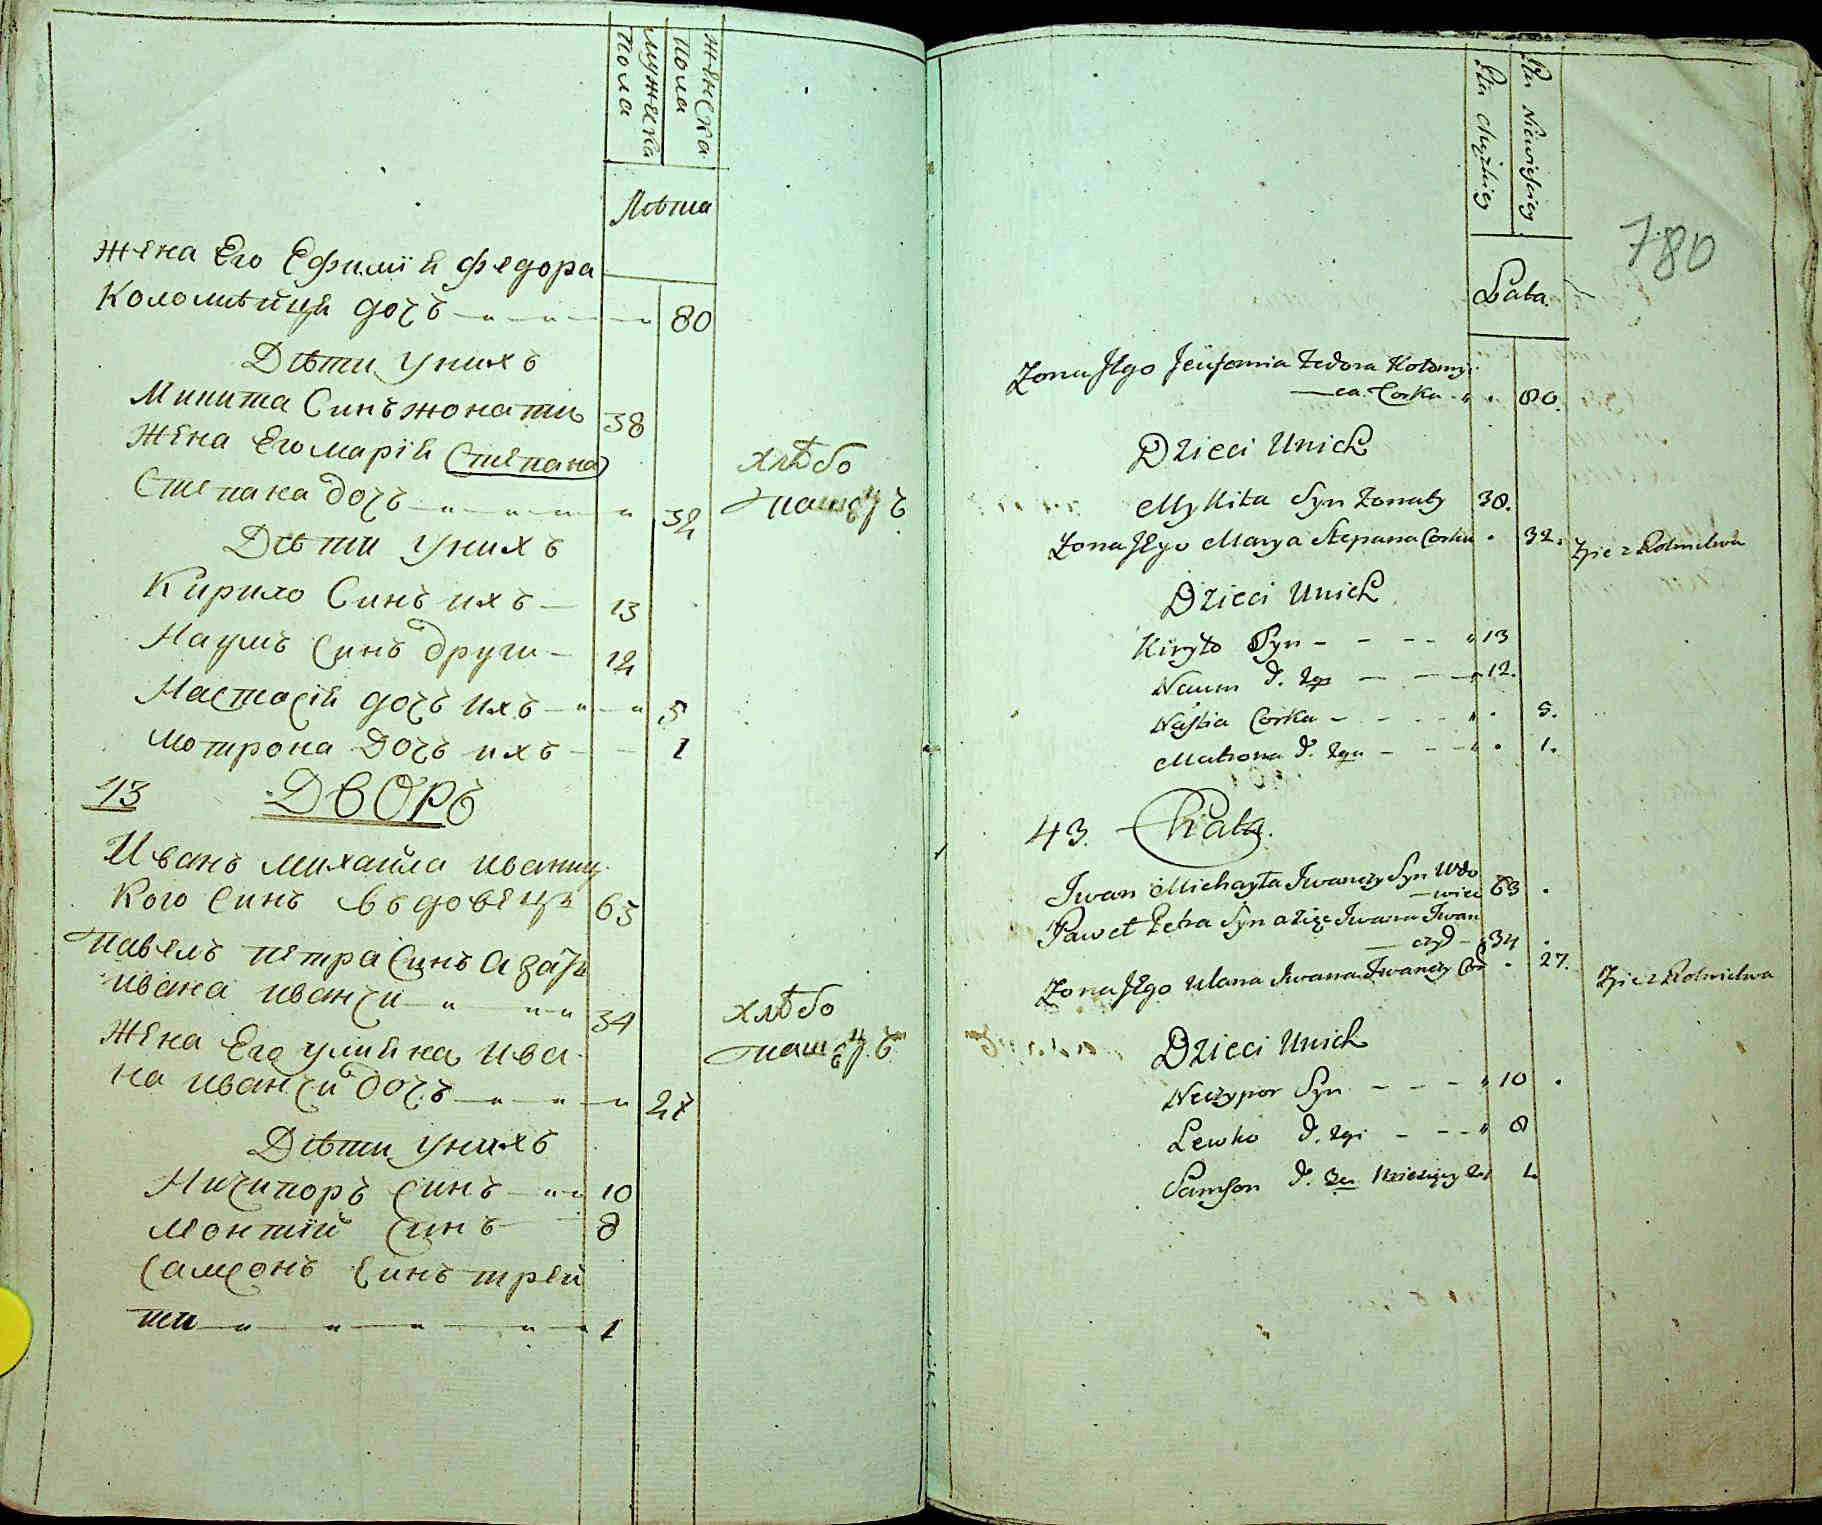 мужеска пола
женска пола
Лѣта
жена Его Ефимїй федора
Коломѣйця дочъ 80
Дѣти унихъ
Микита Синъ жонати 38
жена Его Марїй Степана
Степана дочъ 32
хлѣбо
пашецъ
Дѣти унихъ
Кирило Синъ ихъ 13
Наумъ Синъ други 12
Настасїй дочъ ихъ 5
Мотрона дочъ ихъ 1
43 Дворъ
Иванъ михайла иваниц
кого Синъ въдовецъ 63
Павелъ петра Синъ а зать
ивана иванчи 34
жена Его улийна ива
на иванчи дочъ 27
хлѣбо
пашецъ
Дѣти унихъ
Ничипоръ Синъ 10
Леонтїй Синъ 8
Самсонъ Синъ трей
ти 1
Płci Męzkiey
Płci Niewiesciey
780
Lata.
Zona Jego Jeufemia Fedora Kołomyi
ca Corka 80.
Dzieci Unich
Mykita Syn Zonaty 38.
Zona Jego Marya Stepana Corka 32. Zyie z Rolnictwa
Dzieci Unich
Kiryło Syn 13
Naum d. 12.
Nastia Corka 5.
Matrona d. 1.
43. Chata.
Jwan Michayła Jwanczy Syn Wdo
wiec 63
Paweł Petra Syn a zięc Jwana Jwan
czy 34
Zona Jego Ulana Jwana Jwanczy Cor 27. Zyie z Rolnictwa
Dzieci Unich
Neczypor Syn 10
Lewko d. 8
Samson d. 1.